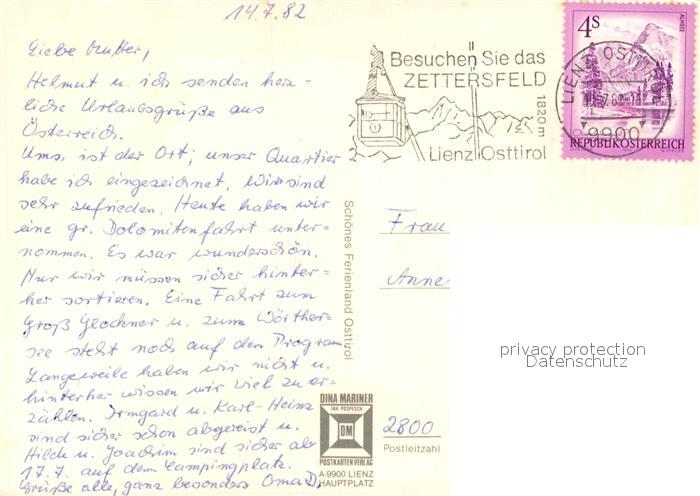 14.7.82
Liebe Mutter,
Helmut u. ich senden herz=
liche Urlaubsgrüße aus
Österreich.
Ums. ist der Ort; unser Quartier
habe ich eingezeichnet. Wir sind
sehr zufrieden. Heute haben wir
eine gr. Dolomitenfahrt unter=
nommen. Es war wunderschön.
Nur wir müssen sicher hinter=
her sortieren. Eine Fahrt zum
Groß Glockner u. zum Wörther=
see steht noch auf dem Program
Langeweile haben wir nicht u.
hinterher wissen wir viel zu er=
zählen. Irmgard u. Karl-Heinz
sind sicher schon abgereist u.
Hilde u. Joachim sind sicher ab
17.7. auf dem Campingplatz.
Grüße alle, ganz besonders Oma D.
Schönes Ferienland Osttirol
DINA MARINER
INH POSPESCH
DM
POSTKARTENVERLAG
A-9900 LIENZ
HAUPTPLATZ
Besuchen Sie das
ZETTERSFELD
1820 m
Lienz Osttirol
LIENZ, OSTTIROL
9900
4S
ALMSEE
REPUBLIK ÖSTERREICH
Frau
Anne
privacy protection
Datenschutz
2800
Postleitzahl